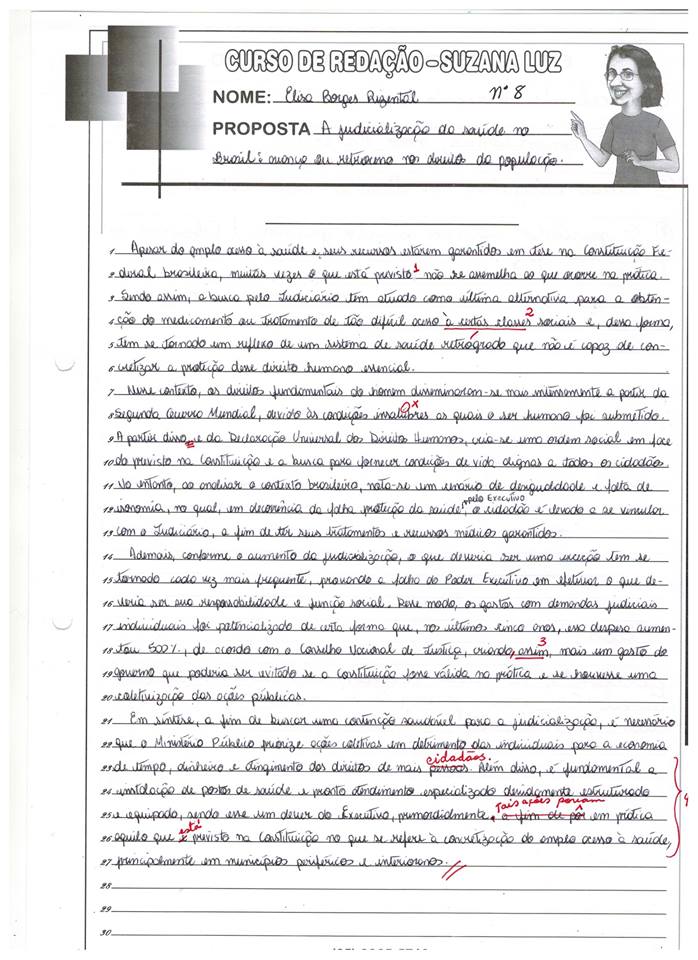 CURSO DE REDAÇÃO - SUZANA LUZ
NOME: Elisa Borges Rizental nº 8
PROPOSTA A judicialização da saúde no
Brasil: avanço ou retrocesso nos direitos da população.
1 Apesar do amplo acesso à saúde e seus recursos estarem garantidos em tese na Constituição Fe-
2 deral brasileira, muitas vezes o que está previsto 1 não se assemelha ao que ocorre na prática.
3 Sendo assim, a busca pelo Judiciário tem atuado como última alternativa para a obten-
4 ção do medicamento ou tratamento de tão difícil acesso à certas classes 2 sociais e, dessa forma,
5 tem se tornado um reflexo de um sistema de saúde retrógrado que não é capaz de con-
6 cretizar a proteção desse direito humano essencial.
7 Nesse contexto, os direitos fundamentais do homem disseminaram-se mais intensamente a partir da
8 Segunda Guerra Mundial, devido às condições insalubres as quais o ser humano foi submetido.
9 A partir disso, e da Declaração Universal dos Direitos Humanos, cria-se uma ordem social em face
10 do previsto na Constituição e a busca para fornecer condições de vida dignas a todos os cidadãos.
11 No entanto, ao analisar o contexto brasileiro, nota-se um cenário de desigualdade e falta de
pelo Executivo
12 isonomia, no qual, em decorrência da falha proteção da saúde, o cidadão é levado a se vincular
13 com o Judiciário, a fim de ter seus tratamentos e recursos médicos garantidos.
14 Ademais, conforme o aumento da judicialização, o que deveria ser uma exceção tem se
15 tornado cada vez mais frequente, provando a falha do Poder Executivo em efetivar o que de-
16 veria ser sua responsabilidade e função social. Desse modo, os gastos com demandas judiciais
17 individuais foi potencializado de certa forma que, nos últimos cinco anos, essa despesa aumen-
18 tou 500%, de acordo com o Conselho Nacional de Justiça, criando, assim, 3 mais um gasto do
19 governo que poderia ser evitado se a Constituição fosse válida na prática e se houvesse uma
20 coletivização das ações públicas.
21 Em síntese, a fim de buscar uma contenção saudável para a judicialização, é necessário
22 que o Ministério Público priorize ações coletivas em detrimento das individuais para a economia
cidadãos.
23 de tempo, dinheiro e atingimento dos direitos de mais pessoas. Além disso, é fundamental a
24 instalação de postos de saúde e pronto atendimento especializado devidamente estruturado
Tais ações poriam
25 e equipado, sendo esse um dever do Executivo, primordialmente. a fim de pôr em prática
está
26 aquilo que é previsto na Constituição no que se refere à concretização do amplo acesso à saúde,
27 principalmente em municípios periféricos e interioranos.
28
29
30